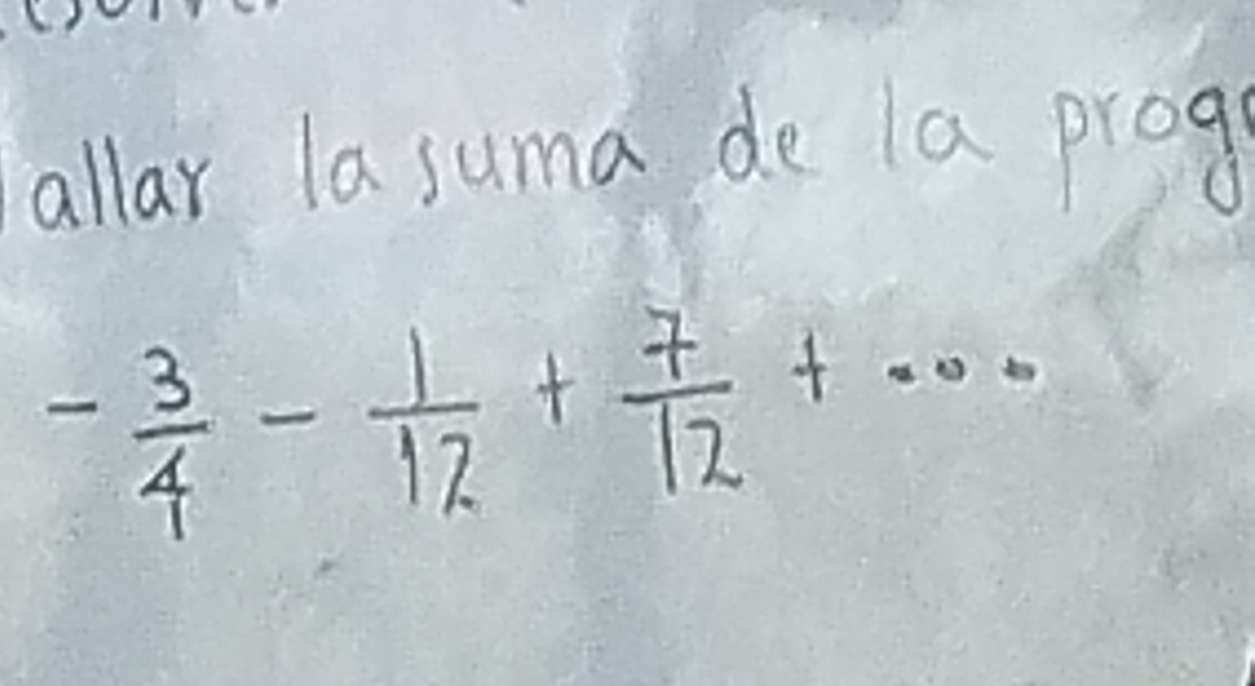 allar la suma de la prog
- 3/4 - 1/12 + 7/12 + ...